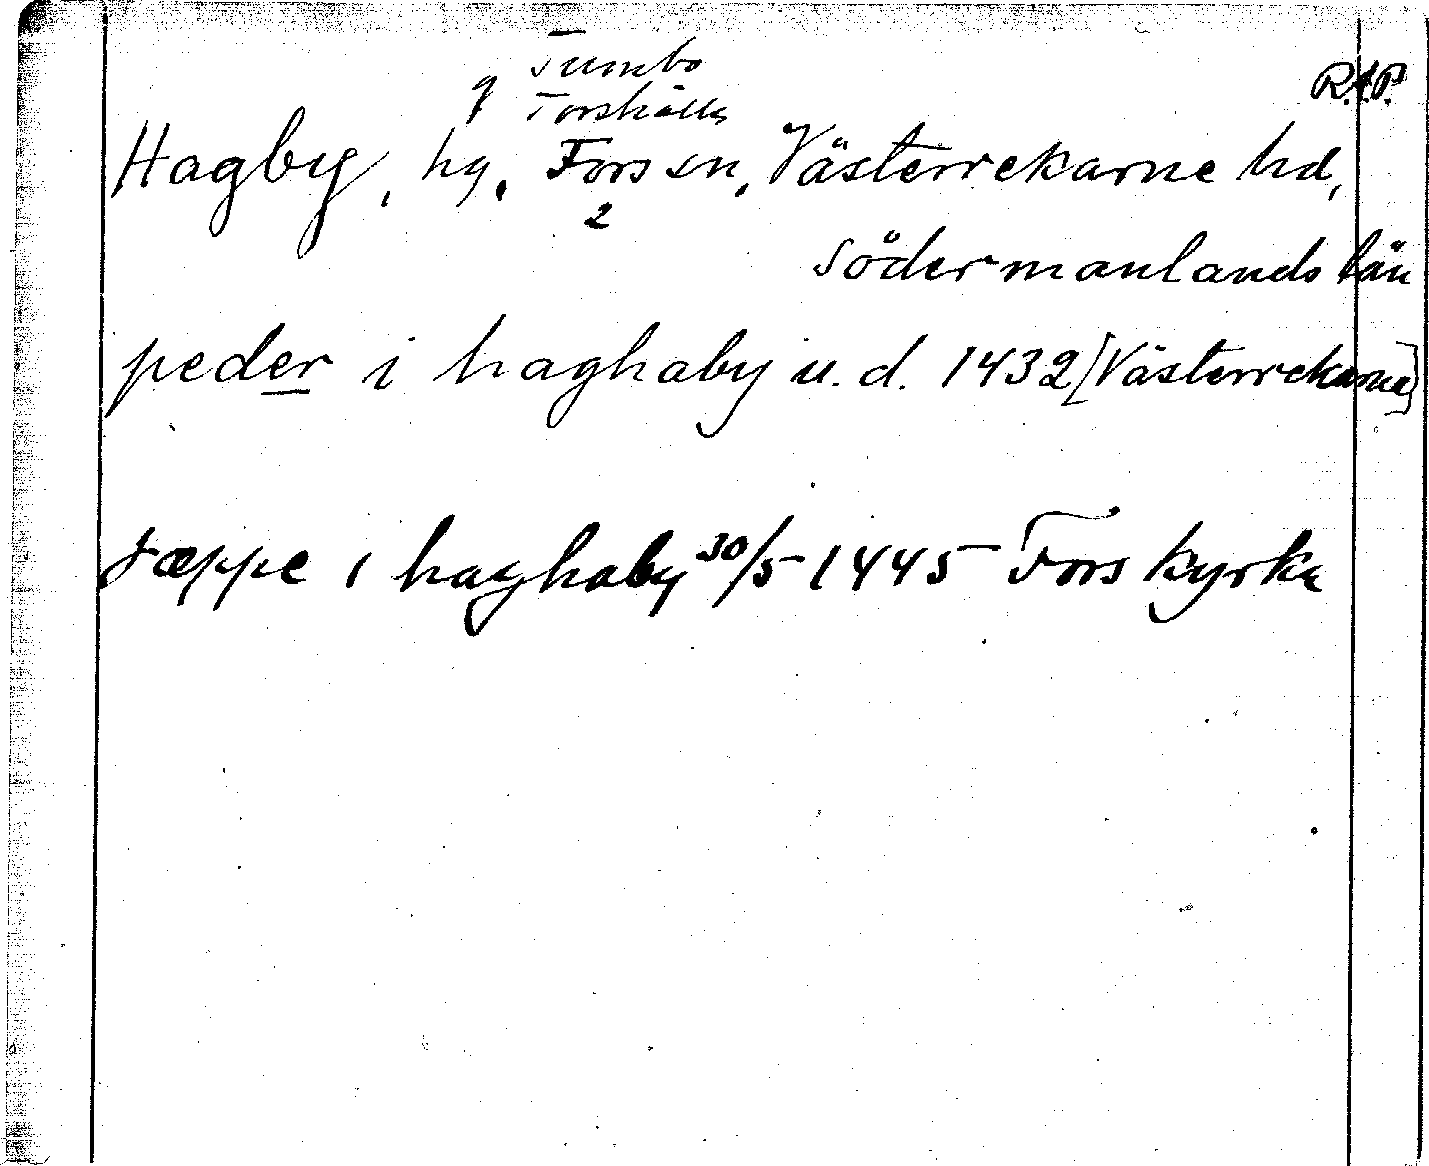 Tumbo
R.A.P.
? Torshälla
Hagby, hg, Fors sn, Västerrekarne hd,
2
Södermanlands län
peder i haghaby u.d. 1432 [Västerrekarne]
jæppe i haghaby 30/5 1445 Fors kyrka